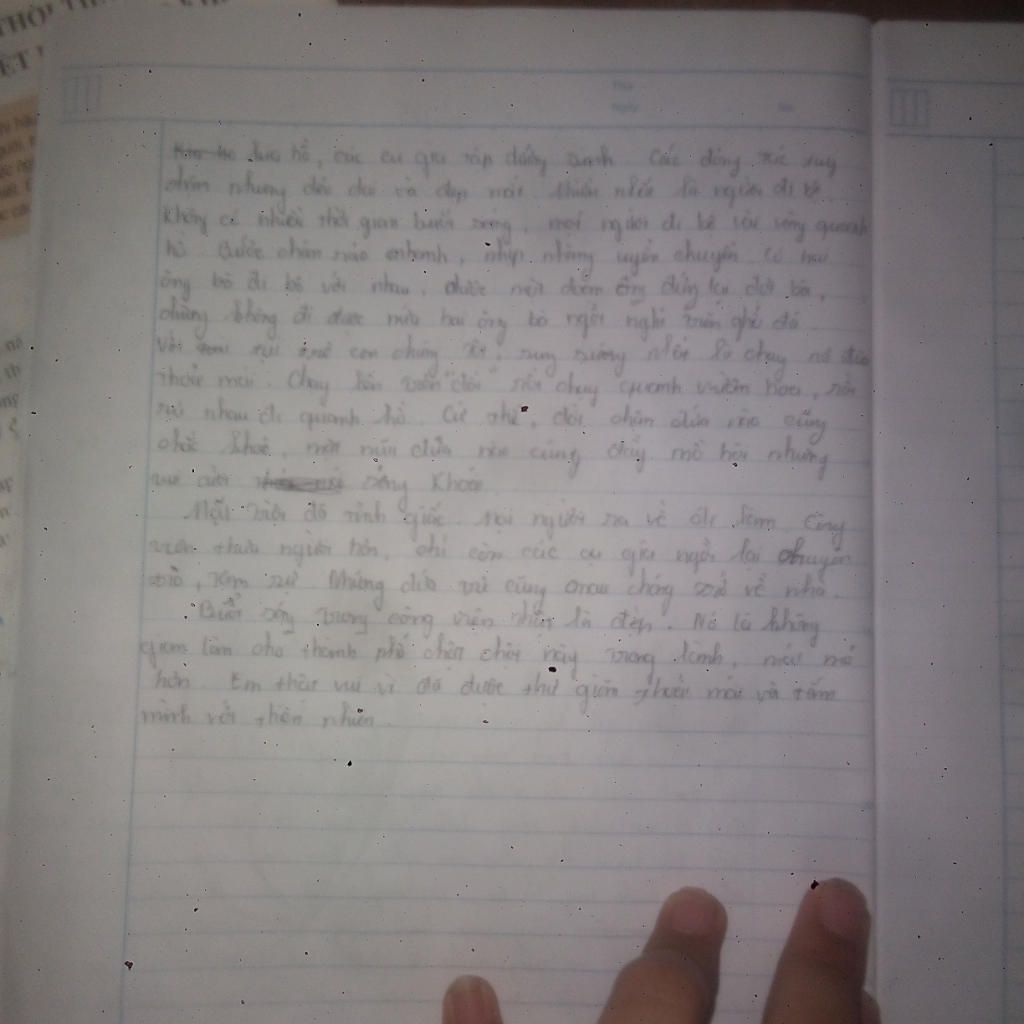 THỜI TIẾ
ẾT
Thứ
Ngày
No.
hồ, các cụ già tập dưỡng sinh. Các động tác tuy
chậm nhưng dẻo dai và đẹp mắt. Nhiều nhất là người đi bộ.
Không có nhiều thời gian buổi sáng, mọi người đi bộ vài vòng quanh
hồ. Bước chân nào nhanh, nhịp nhàng uyển chuyển. Có hai
ông bà đi bộ với nhau, được một đoạn ông đứng lại đợi bà,
chừng không đi được nữa hai ông bà ngồi nghỉ trên ghế đá.
Với trẻ con chúng em, sung sướng nhất là chạy nô đùa
thoải mái. Chạy lên "đồi" rồi chạy quanh vườn hoa, rồi
rủ nhau đi quanh hồ. Cứ thế, đôi chân đứa nào cũng
chắc khoẻ, mặt mũi đứa nào cũng đầy mồ hôi nhưng
vui cười sảng khoái.
Mặt trời đã tỉnh giấc. Mọi người ra về đi làm. Công
viên thưa người hơn, chỉ còn các cụ già ngồi lại chuyện
trò, tâm sự. Những đứa trẻ cũng mau chóng trở về nhà.
Buổi sáng trong công viên thật là đẹp. Nó là không
gian làm cho thành phố chật chội này trong lành, mát mẻ
hơn. Em thấy vui vì đã được thư giãn thoải mái và tắm
mình với thiên nhiên.